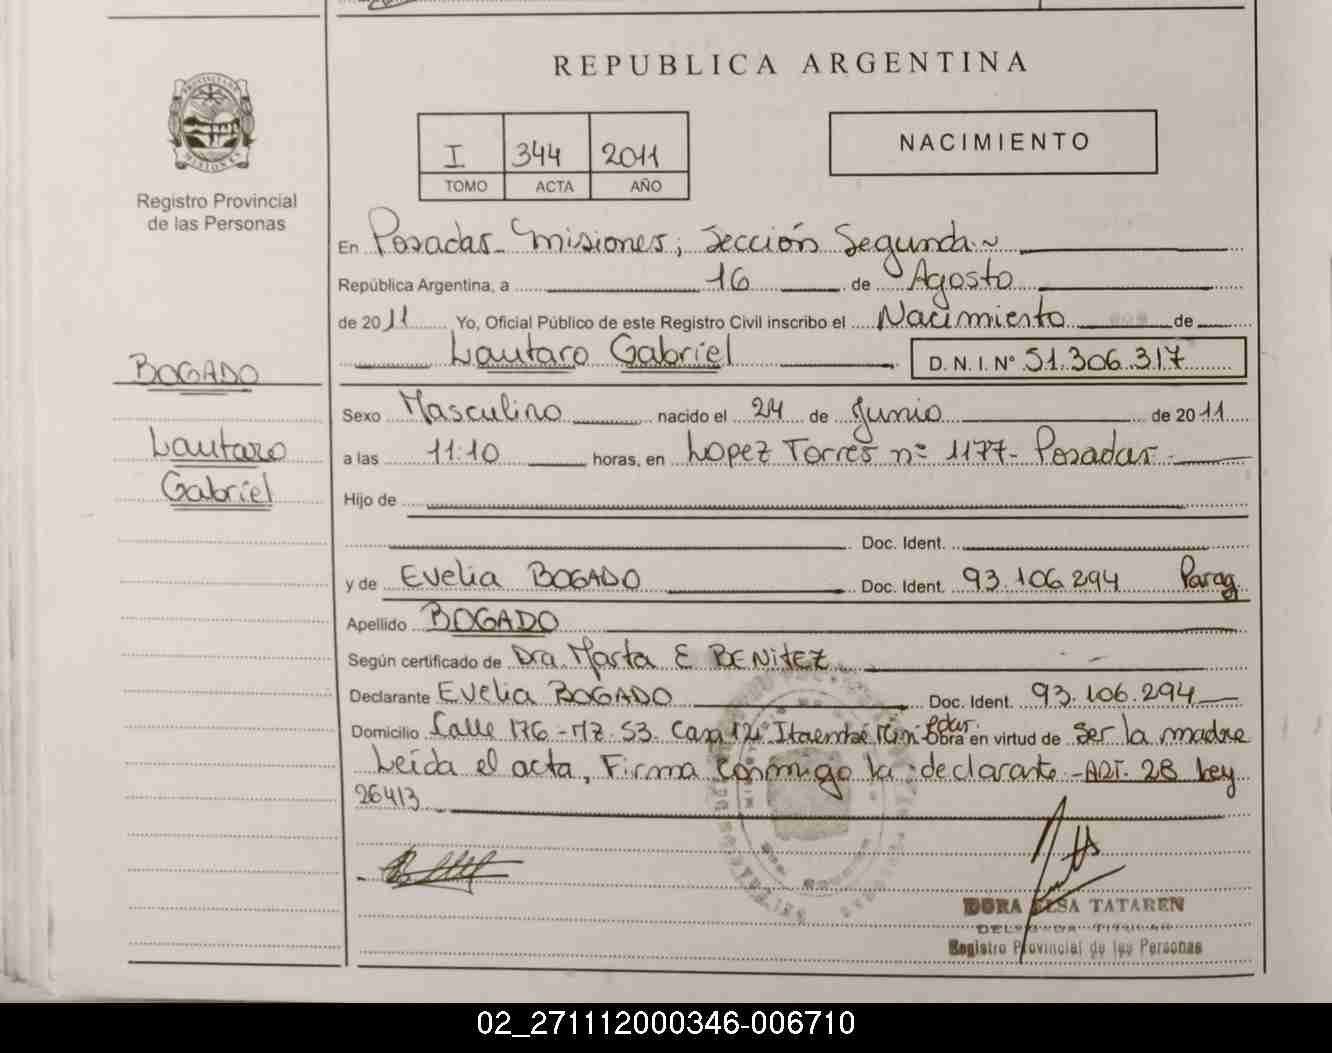 REPUBLICA ARGENTINA
PROVINCIA DE MISIONES
Registro Provincial
de las Personas
I 344 2011
TOMO ACTA AÑO
NACIMIENTO
En Posadas - Misiones, Sección Segunda
República Argentina, a 16 de Agosto
de 2011 Yo, Oficial Público de este Registro Civil inscribo el Nacimiento de
Lautaro Gabriel D. N. I. Nº 51.306.317
BOGADO
Lautaro
Gabriel
Sexo Masculino nacido el 24 de Junio de 2011
a las 11:10 horas, en Lopez Torres nº 1177 - Posadas
Hijo de
Doc. Ident.
y de Evelia BOGADO Doc. Ident. 93.106.294 Parag
Apellido BOGADO
Según certificado de Dra. Marta E BENITEZ
Declarante Evelia BOGADO Doc. Ident. 93.106.294
Domicilio Calle 176 - Mz. 53. Casa 12. Itaembé Miní Pdas. Obra en virtud de Ser la madre
Leída el acta, Firma conmigo la declarante - ART. 28 Ley
26413
DORA ELSA TATAREN
DELEGADA TITULAR
Registro Provincial de las Personas
02_271112000346-006710